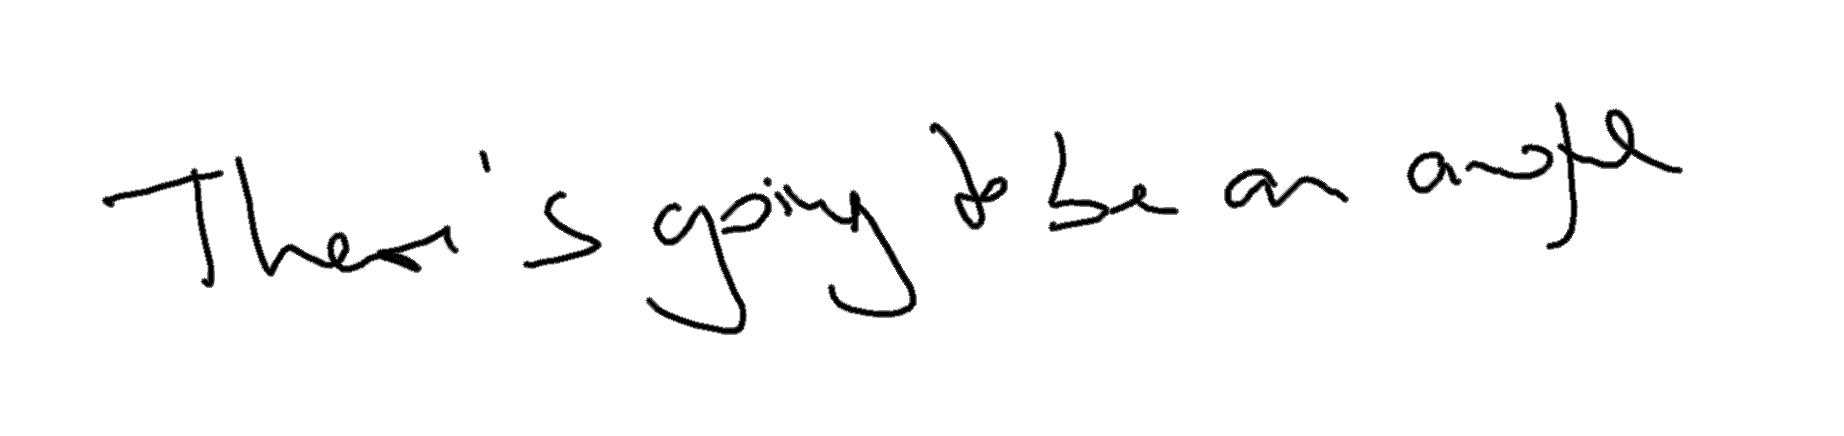 There's going to be an angle